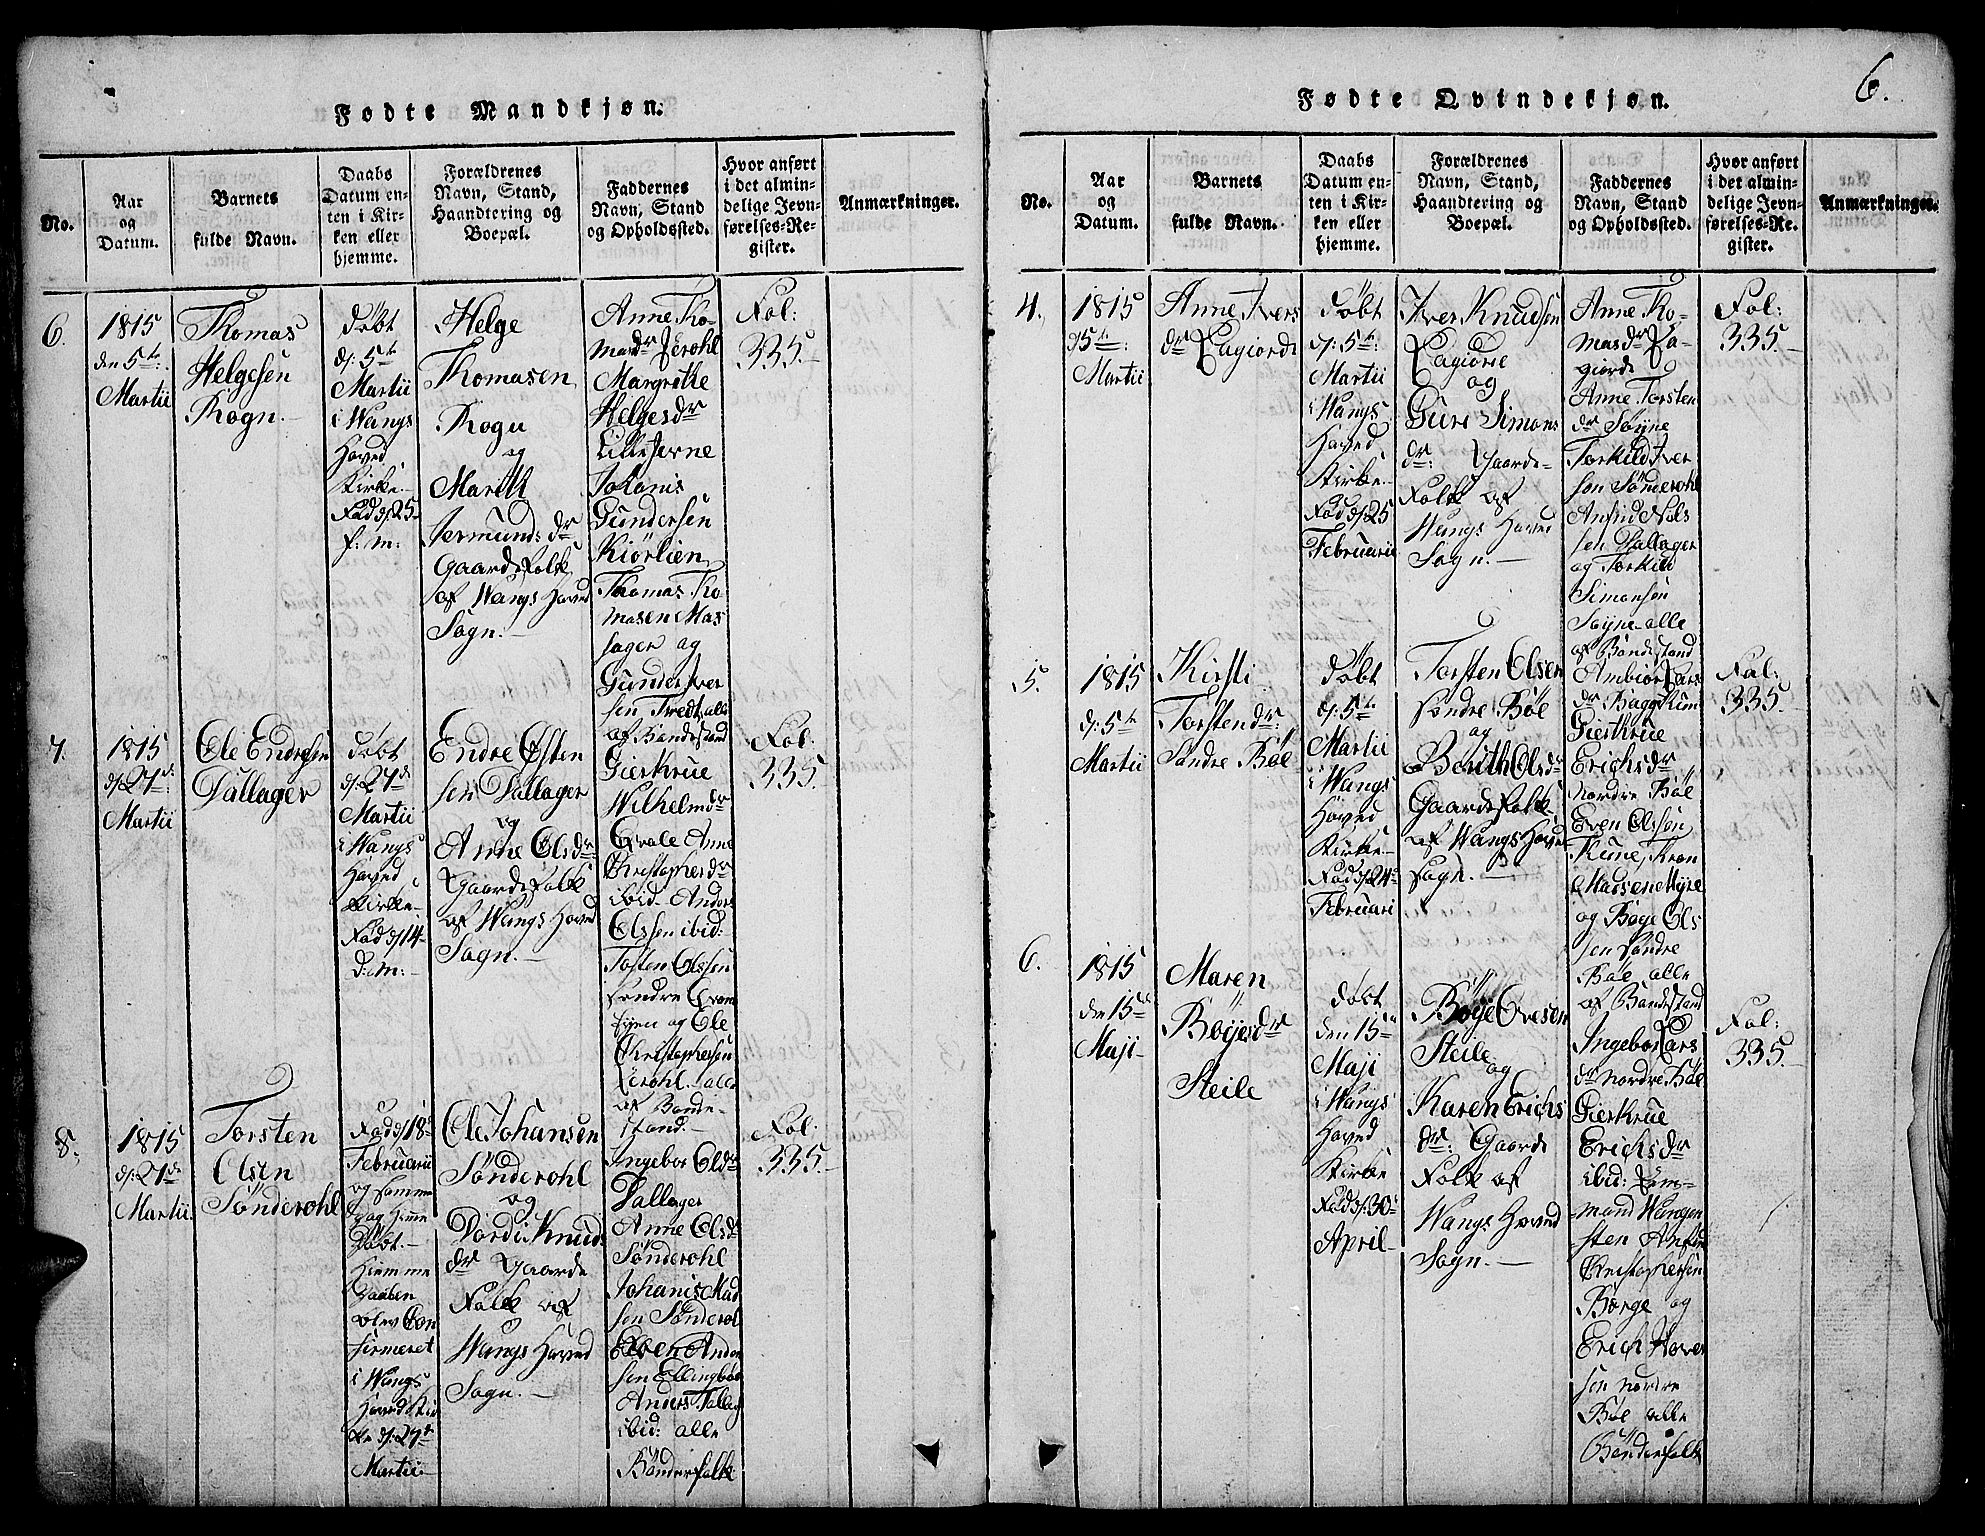 Fødte Mandkjøn.
No.
Aar
og
Datum.
Barnets
fulde Navn.
Daabs
Datum en-
ten i Kir-
ken eller
hjemme.
Forældrenes
Navn, Stand,
Haandtering og
Boepæl.
Faddernes
Navn, Stand
og Opholdssted.
Hvor anført
i det almin-
delige Jevn-
førelses-Re-
gister.
Anmærkninger.
6.
1815
den 5te:
Martii
Thomas
Helgesen
Rogn.
døbt
d: 5te
Martii
i Wangs
Hoved
Kirke.
Fød d: 25
f: m:
Helge
Thomasen
Rogn
og
Maritt
Jermund: dr
Gaardefolk
af Wangs Hoved
Sogn.
Anne Tho-
masdr
Margrethe
Helgesdr
Lille
Johanis
Gundersen
Kiørlien
Thomas Tho
masen Mas
sager og
Gunder Iver
sen Twedt alle
af Bondestand
Fol:
335.
7.
1815
d: 27de:
Martii
Ole Endresen
Dallager
døbt
d: 27de
Martii
i Wangs
Hoved
Kirke.
Fød d: 14
d: m:
Endre Østen
sen Dallager
og
Anne Olsdr
Gaardefolk
af Wangs Hoved
Sogn.
Gierkrue
Wilhelmdr
Qvale Anne
Christophersdr
ibid Anders
Olssen ibid:
Tosten Olssen
søndre
og Ole
Christophersen
alle
af Bonde-
stand.
Fol:
335
8.
1815
d: 27de
Martii
Torsten
Olsen
Sønderohl
Fød d: 18de
Februarii
og samme
dag Hieme
Døbt.
Hiemme
Daaben
blev Con
firmeret
i Wangs
Hoved Kir
ke d: 27de
Martii
Ole Johansen
Sønderohl
og
Dordi Knuds
dr Gaarde
Folk af
Wangs Hoved
Sogn.
Ingebor Olsdr
Dallager
Anne Olsdr
Sønderohl
Johanis Mad
sen Sønderohl
Even Ander
sen Ellingbøe
Anders Dallag
ibid: alle
Bønderfolk
Fol:
335.
6.
Fødte Qvindekjøn.
No.
Aar
og
Datum.
Barnets
fulde Navn.
Daabs
Datum en-
ten i Kir-
ken eller
hjemme.
Forældrenes
Navn, Stand,
Haandtering og
Boepæl.
Faddernes
Navn, Stand
og Opholdssted.
Hvor anført
i det almin-
delige Jevn-
førelses-Re-
gister.
Anmærkninger.
4.
1815
d: 5te:
Martii
Anne Ivers
dr
døbt
d: 5te:
Martii
i Wangs
Hoved
Kirke.
Fød d: 25
Februarii
Iver Knudsen
og
Guri Simons
dr: Gaarde-
Folk af
Wangs Hoved
Sogn.
Anne Tho-
masdr
Anne Torsten
dr Søyne
Torkild Iver
sen Sønderohl
Anfind Nils
sen Dallager
og Torkild
Simonsen
Søyne alle
af Bondestand
Fol:
335.
5.
1815
d: 5te
Martii
Kirsti
Torstendr:
Søndre Bøe
døbt
d: 5te
Martii
i Wangs
Hoved
Kirke.
Fød d: 24de
Februari
Torsten Olsen
søndre Bøe
og
Berith Olsdr
Gaardefolk
af Wangs Hoved
Sogn.
Ambiør Lars
dr
Gierkrue
Erichsdr
nordre Bøe
Even Olssen
Madsen Myre
og Bøye Ols
sen søndre
Bøe alle
af Bondestand
Fol:
335.
6.
1815
den 15de
Maji
Maren
Bøyesdr
Steile
døbt
den 15de
Maji
i Wangs
Hoved
Kirke
Fød d: 30te
April
Bøye Ovesen
Steile
og
Karen Erichs
dr: Gaarde
Folk af
Wangs Hoved
Sogn.
Ingebor Lars
dr nordre Bøe
Gierkrue
Erichsdr
ibid:
mand Wangen
sten Anfin
Christophersen
Børge og
Erich Haver
sen nordre
Bøe alle
Bønderfolk
Fol:
335.